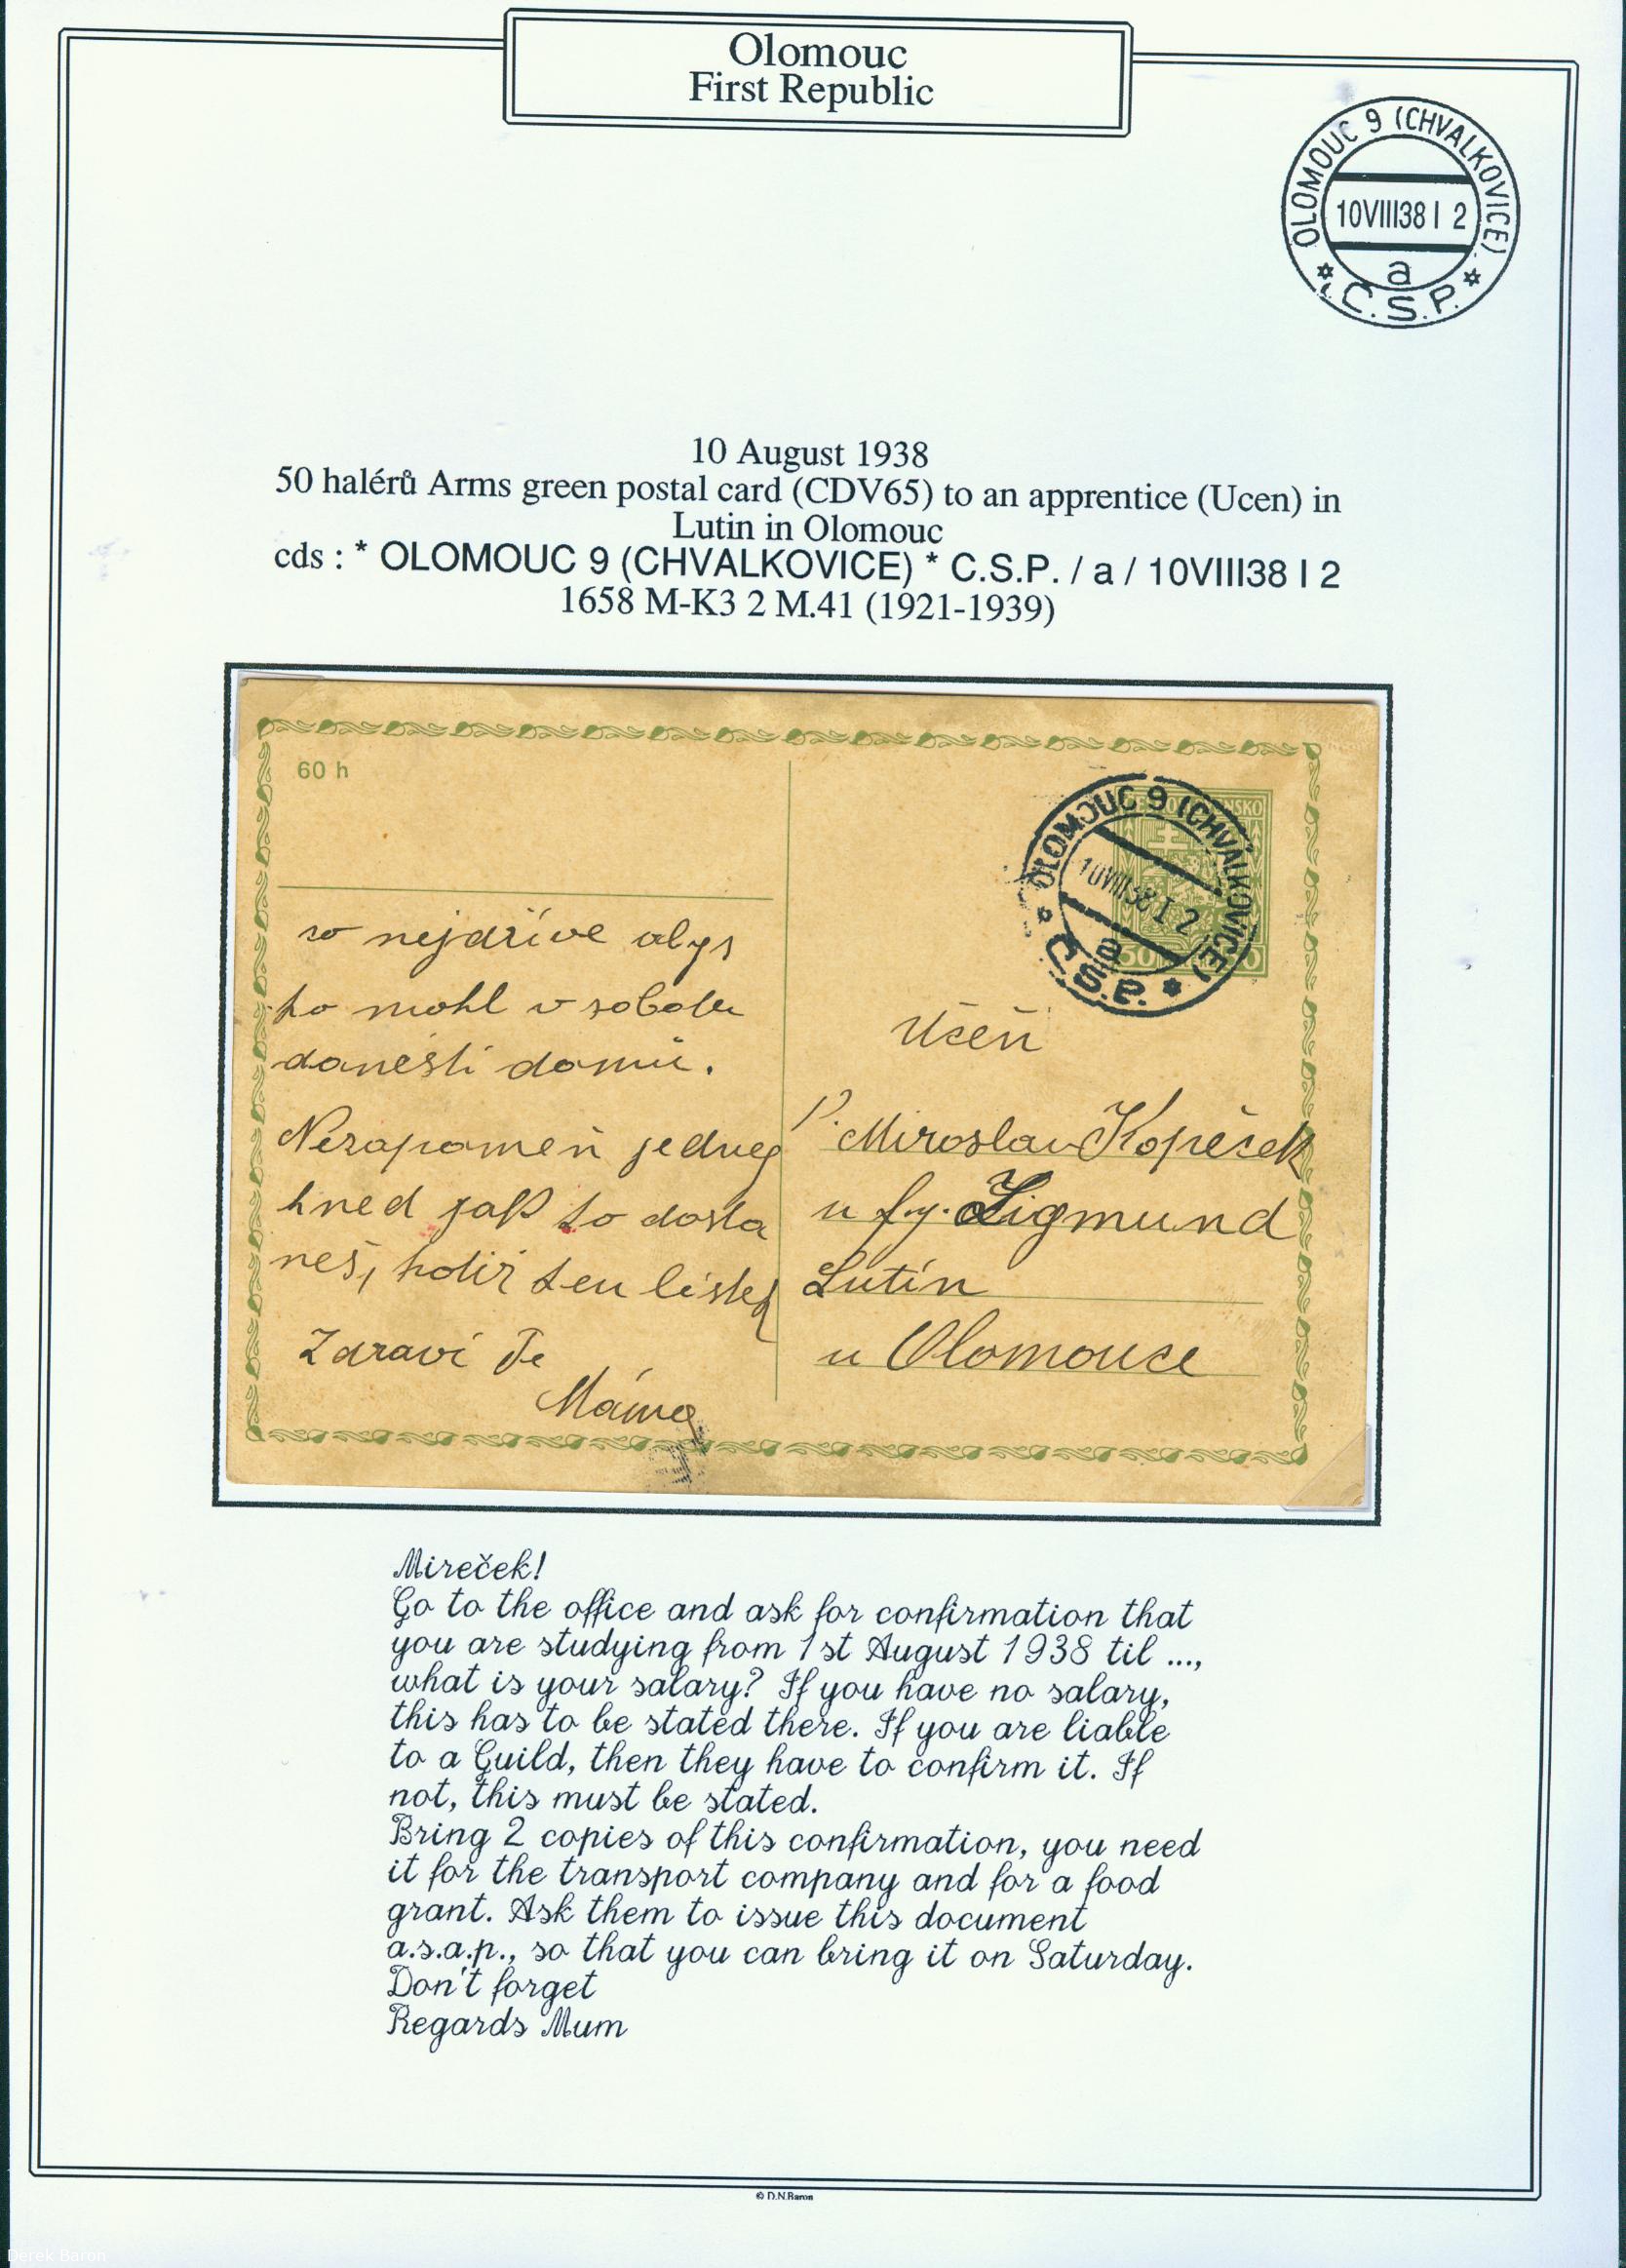 Olomouc
First Republic
OLOMOUC 9 (CHVALKOVICE)
10VIII38 I 2
a
* Č.S.P. *
10 August 1938
50 halérů Arms green postal card (CDV65) to an apprentice (Ucen) in
Lutin in Olomouc
cds : * OLOMOUC 9 (CHVALKOVICE) * C.S.P. / a / 10VIII38 I 2
1658 M-K3 2 M.41 (1921-1939)
60 h
OLOMOUC 9 (CHVALKOVICE)
10VIII38 I 2
a
* Č.S.P. *
50
co nejdříve abys
to mohl v sobotu
donésti domů.
Nezapomeň jednej
hned jak to dosta
neš, hotir ten lístek
Zdraví Tě
Máma
Učeň
P. Miroslav Kopeček
u fy. Sigmund
Lutín
u Olomouce
Mireček!
Go to the office and ask for confirmation that
you are studying from 1st August 1938 til ...,
what is your salary? If you have no salary,
this has to be stated there. If you are liable
to a Guild, then they have to confirm it. If
not, this must be stated.
Bring 2 copies of this confirmation, you need
it for the transport company and for a food
grant. Ask them to issue this document
a.s.a.p., so that you can bring it on Saturday.
Don't forget
Regards Mum
© D.N.Baron
Derek Baron